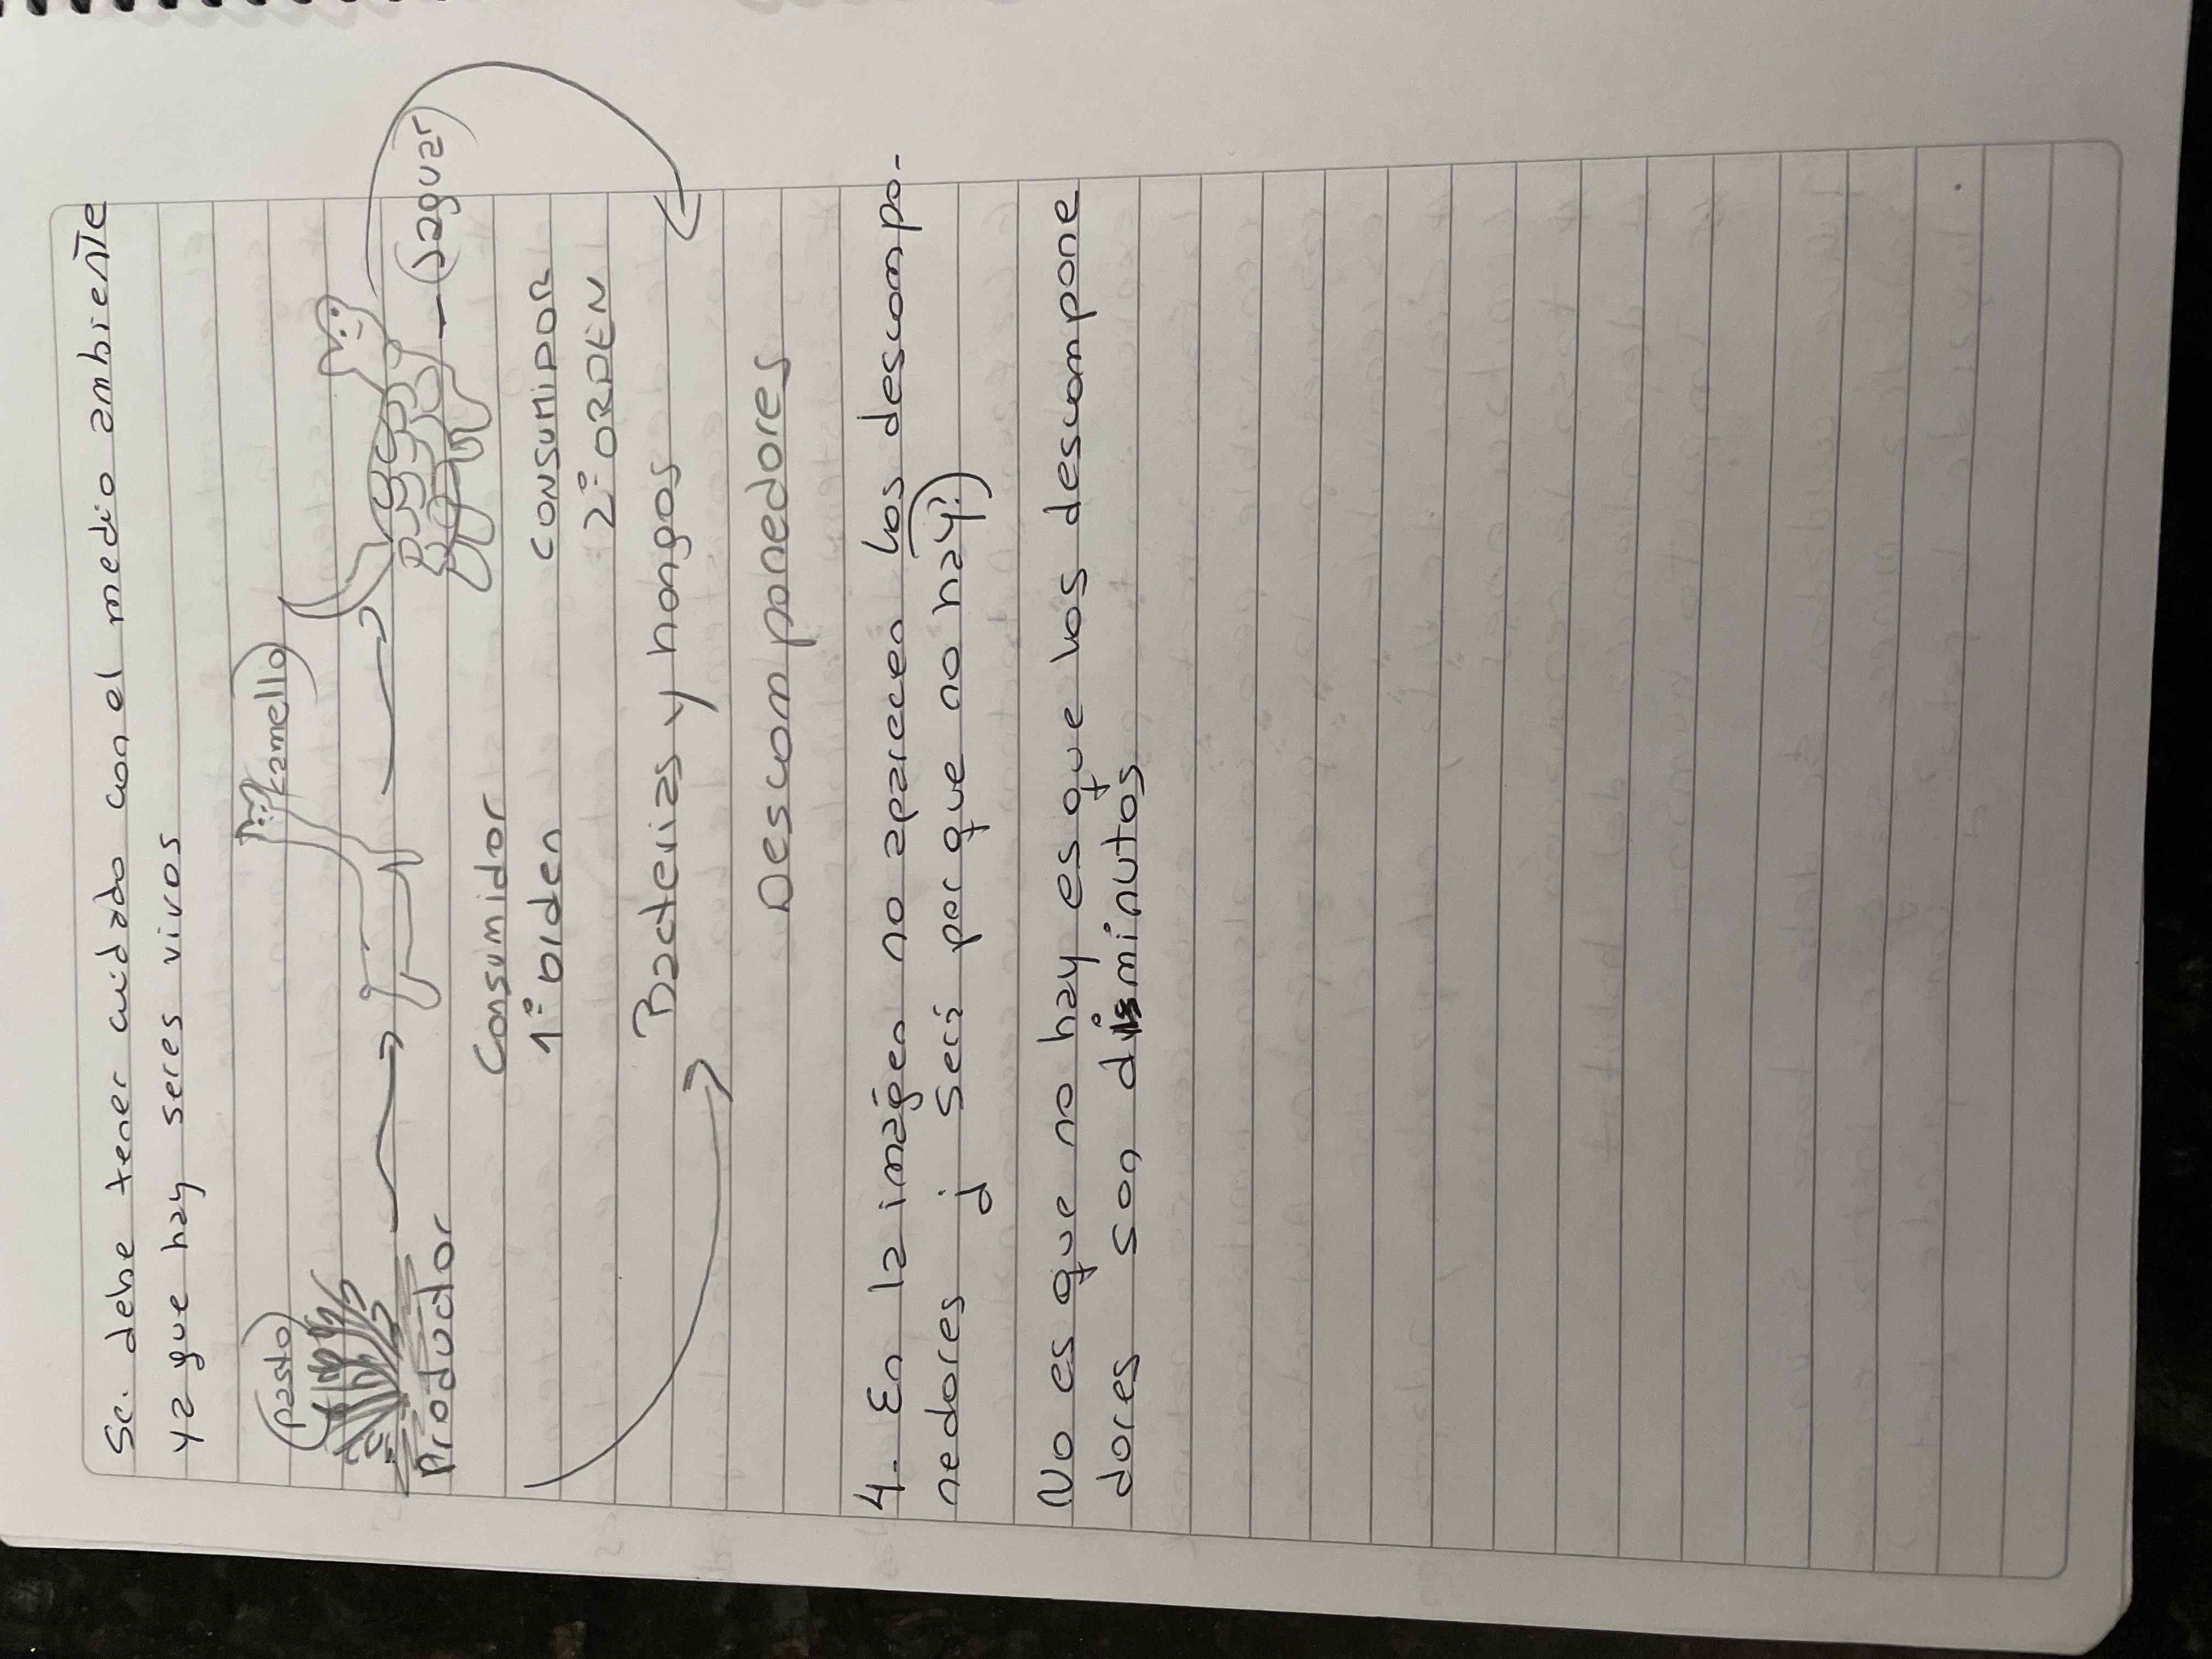 Se. debe tener cuidado con el medio ambiente
ya que hay seres vivos
(pasto) (camello)
(Jaguar)
Productor
Consumidor
1º orden
CONSUMIDOR
2º ORDEN
Bacterias y hongos
Descomponedores
4- En la imágen no aparecen los descompo-
nedores ¿ Será por que no hay?
No es que no hay es que los descompone
dores son disminutos